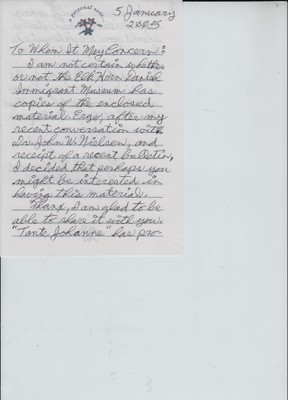 a personal note
5 January
2005
To Whom It May Concern:
I am not certain whether
or not the Elk Horn Danish
Immigrant Museum has
copies of the enclosed
material. Ergo, after my
recent conversation with
Dr. John W. Nielsen, and
receipt of a recent bulletin,
I decided that perhaps you
might be interested in
having this material.
Thanx, I am glad to be
able to share it with you.
"Tante Johanne" has pro-